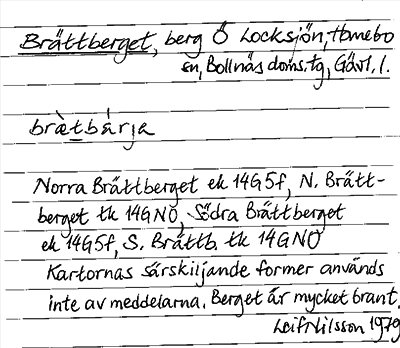 Brättberget, berg Ö Locksjön, Hanebo
sn, Bollnäs doms.tg, Gävl. l.
bræ̀tbárja
Norra Brättberget ek 14G5f, N. Brätt-
berget tk 14GNO, Södra Brättberget
ek 14G5f, S. Brättb. tk 14GNO
Kartornas särskiljande former används
inte av meddelarna. Berget är mycket brant.
Leif Nilsson 1979